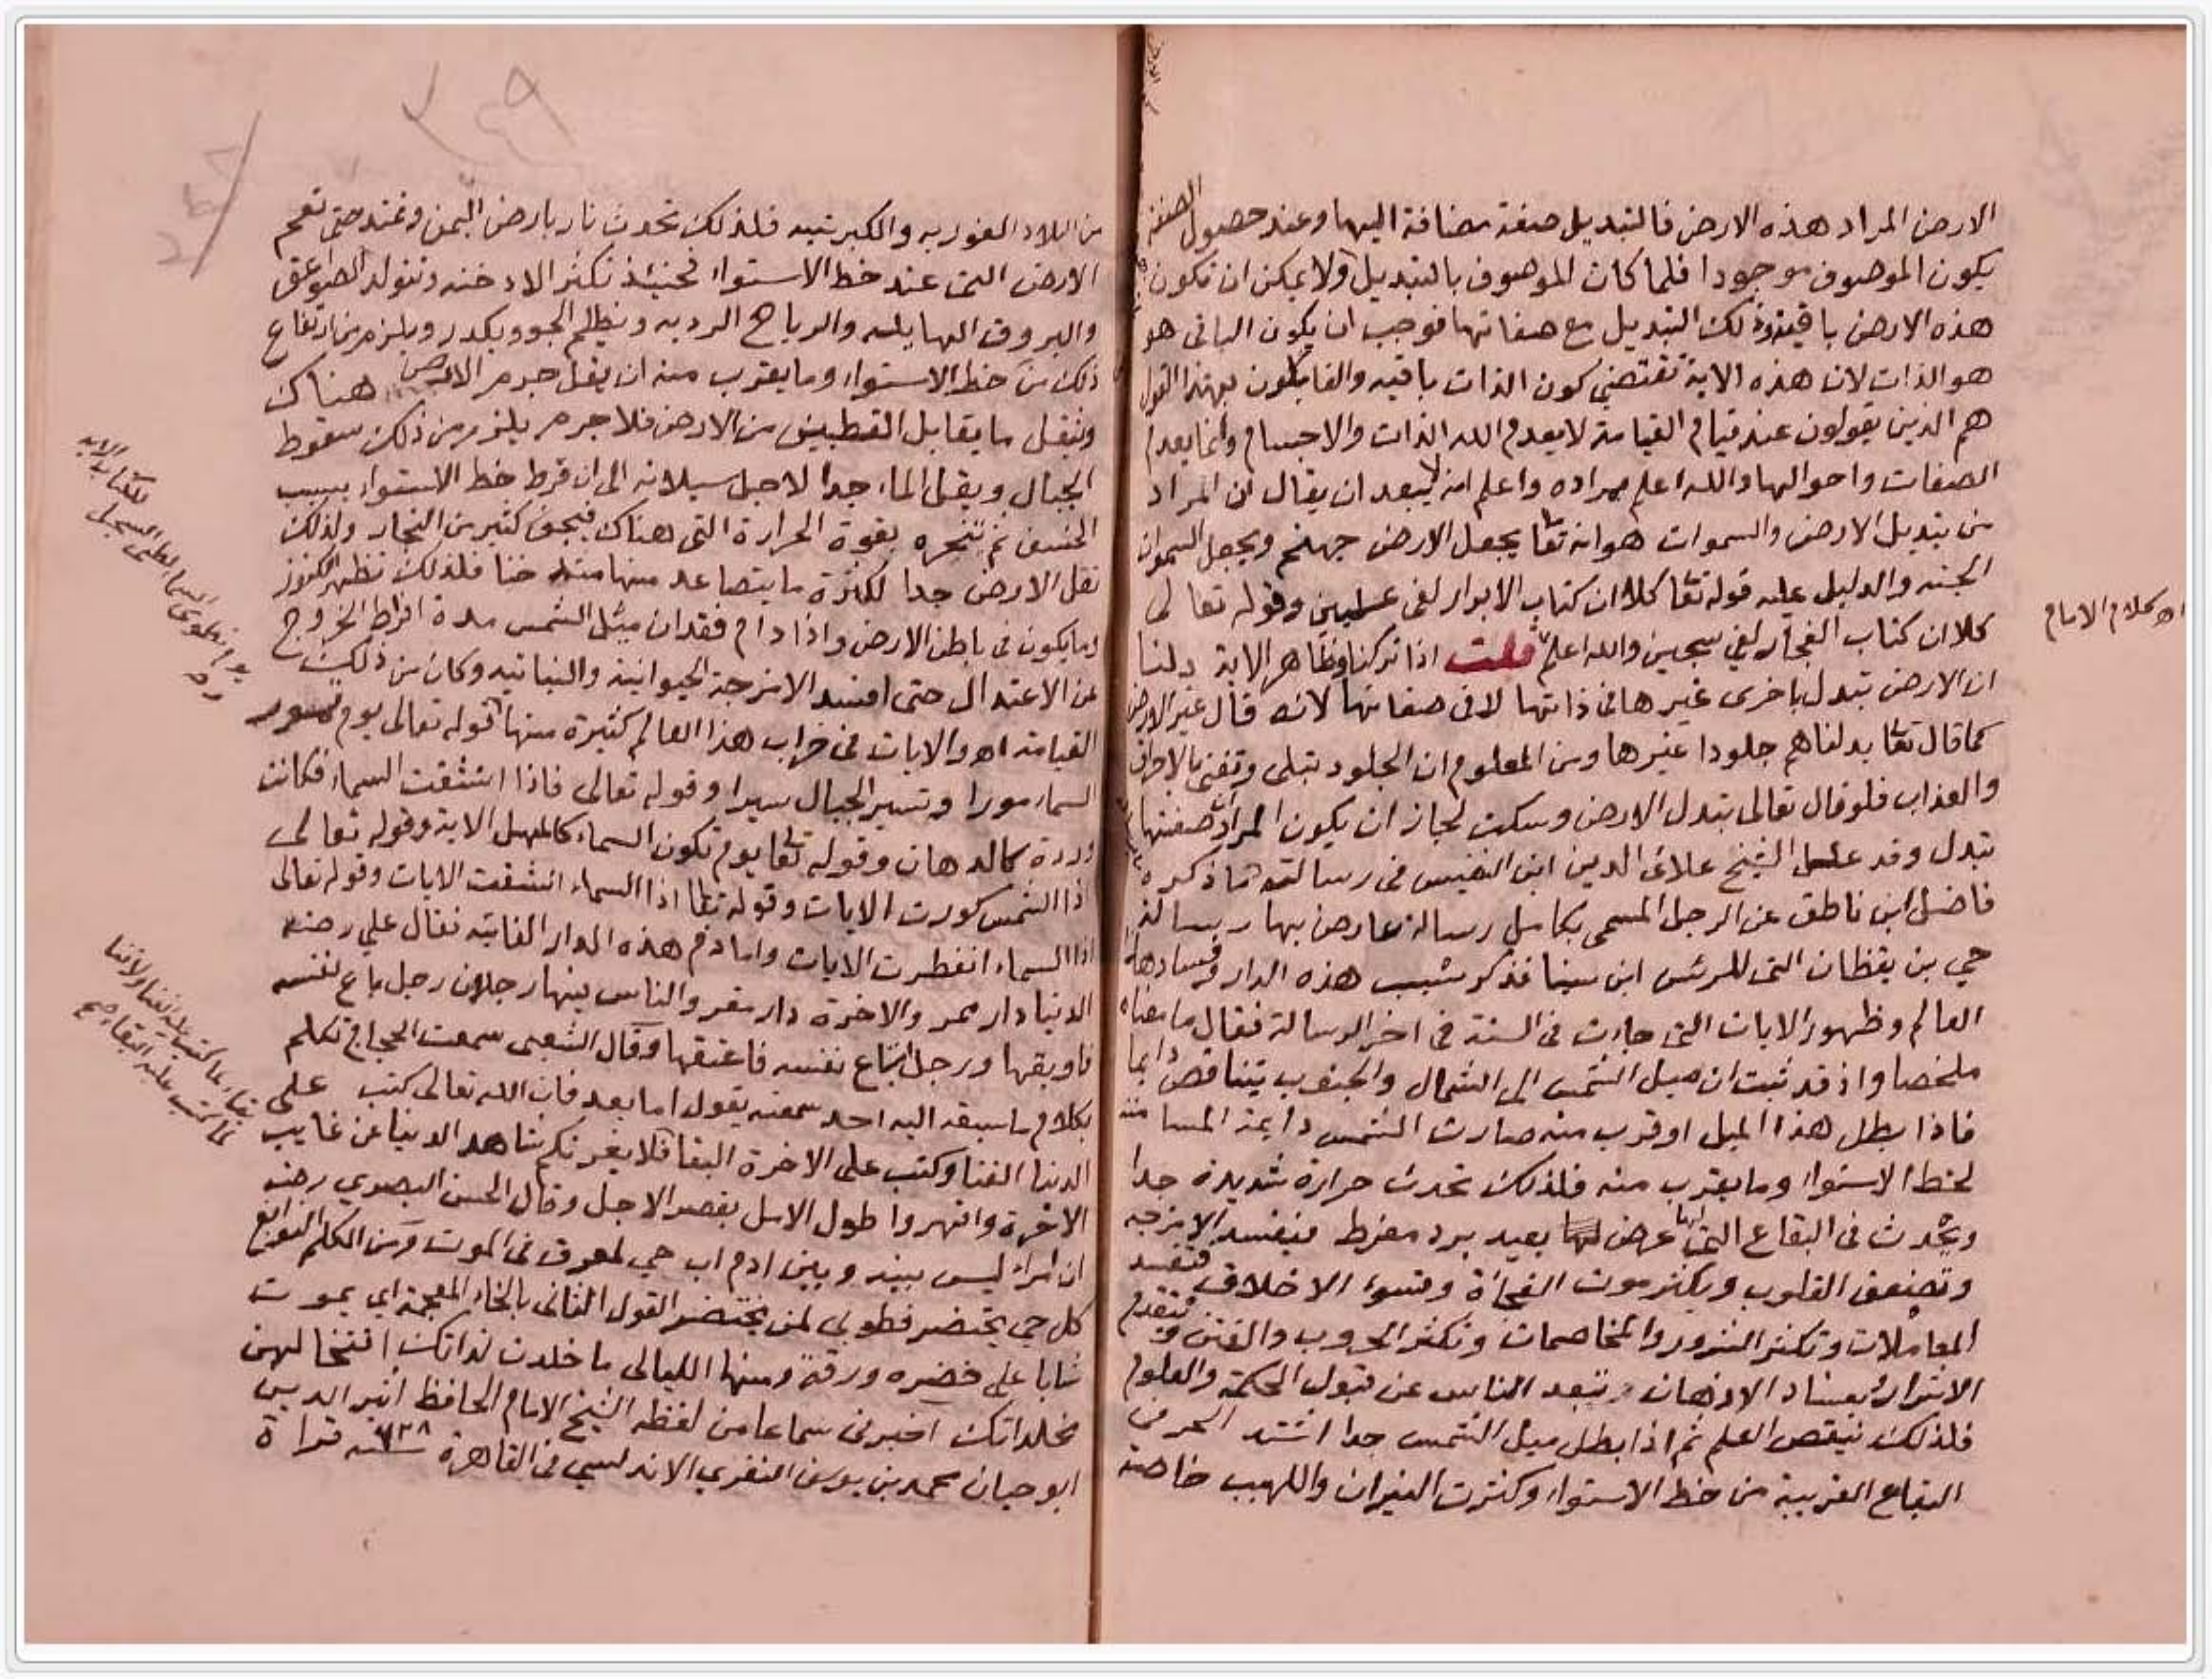 الارض المراد هذه الارض فالتبديل صفة مضافة اليها وعند حصول الصفة
يكون الموصوف موجودا فلما كان الموصوف بالتبديل ولا يمكن ان تكون
هذه الارض باقية وذلك التبديل مع صفاتها فوجب ان يكون الباقى هو
هو الذات لان هذه الاية تقتضي كون الذات باقيه والقايلون بهذا القول
هم الذين يقولون عند قيام القيامة لا يعدم الله الذات والاجسام وانما يعدم
الصفات واحوالها والله اعلم بمراده واعلم انه لا يبعد ان يقال ان المراد
من تبديل الارض والسموات هو انه تعا يجعل الارض جهنم ويجعل السموات
الجنه والدليل عليه قوله تعا كلا ان كتاب الابرار لفى عليين وقوله تعالى
كلا ان كتاب الفجار لفي سجين والله اعلم قلت اذا تركنا وظاهر الاية دلنا
اهـ كلام الامام
ان الارض تبدل باخرى غيرها فى ذاتها لا فى صفاتها لانه قال غير الارض
كما قال تعا بدلناهم جلودا غيرها ومن المعلوم ان الجلود تبلى وتفنى بالاحراق
والعذاب فلو قال تعالى تبدل الارض وسكت لجاز ان يكون المراد صفتها
تبدل وقد الشيخ علائ الدين ابن النفيس فى رسالته ما ذكره
فاضل ابن ناطق عن الرجل المسمى بكامل رسالة عارض بها رسالة
حي بن يقظان التى للرئس ابن سينا فذكر سبب هذه الدار وفسادها
العالم وظهور الايات التى جاءت فى السنة فى اخر الرسالة فقال ما معناه
ملخصا واذ قد ثبت ان ميل الشمس الى الشمال والجنوب يتناقص دايما
فاذا بطل هذا الميل او قرب منه صارت الشمس دايمة المسامتة
لخط الاستواء وما يقرب منه فلذلك تحدث حرارة شديدة جدا
ويحدث فى البقاع التى عرض لها بعيد برد مفرط فيفسد الامزجه
وتضعف القلوب ويكثر موت الفجأة وتسوء الاخلاق فتفسد
المعاملات وتكثر الشرور والمخاصمات وتكثر الحروب والفتن ويتقدم
الاشرار بفساد الاذهان وتبعد الناس عن قبول الحكمة والعلوم
فلذلك ينقص العلم ثم اذا بطل ميل الشمس جدا اشتد الحر فى
البقاع القريبة من خط الاستواء وكثرت النيران واللهيب خاصة
من البلاد الغوريه والكبريتيه فلذلك تحدث نار بارض اليمن وتمتد حتى تعم
الارض التى عند خط الاستواء فحينئذ تكثر الادخنه وتتولد الصواعق
والبروق الهايله والرياح الرديه ويظلم الجو ويكدر ويلزم من ارتفاع
ذلك من خط الاستواء وما يقرب منه ان يقل جرم الارض هناك
ويثقل ما يقابل القطبين من الارض فلا جرم يلزم من ذلك سقوط
الجبال ويقل الماء جدا لاجل سيلانه الى ان فرط خط الاستواء بسبب
الخسف ثم تبخره بقوة الحرارة التى هناك فيجف كثير من البحار ولذلك
تقل الارض جدا لكثرة ما يتصاعد منها فلذلك تظهر الكنوز
وما يكون فى باطن الارض واذا دام فقدان ميل الشمس مدة افرط الخروج
عن الاعتدال حتى افسد الامزجة الحيوانية والنباتيه وكان من ذلك
القيامة اهـ والايات فى خراب هذا العالم كثيرة منها قوله تعالى يوم تمور
السماء مورا وتسير الجبال سيرا وقوله تعالى فاذا انشقت السماء فكانت
وردة كالدهان وقوله تعا يوم تكون السماء كالمهل الاية وقوله تعالى
اذا الشمس كورت الايات وقوله تعا اذا السماء انشقت الايات وقوله تعالى
اذا السماء انفطرت الايات واما ذم هذه الدار الفانيه فقال علي رضه
الدنيا دار ممر والاخرة دار مقر والناس فيها رجلان رجل باع نفسه
فاوبقها ورجل ابتاع نفسه فاعتقها وقال الشعبى سمعت الحجاج تكلم
بكلام ما سبقه اليه احد سمعته يقول اما بعد فان الله تعالى كتب على
الدنيا الفنا وكتب على الاخرة البقا فلا يغرنكم شاهد الدنيا عن غايب
الاخرة واقهروا طول الامل بقصر الاجل وقال الحسن البصري رضه
ان امراء ليس بينه وبين ادم اب حي لمعرق فى الموت ومن الكلم النوابغ
كل حي يختضر فطوبى لمن يختضر القول الثانى بالخاء المعجمة اي يموت
شابا على خضره ورقة ومنها الليالى ما خلدت لذاتك افتخالهن
مخلداتك اخبرنى سماعا من لفظه الشيخ الامام الحافظ اثير الدين
ابو حيان محمد بن يوسف النفزي الاندلسي فى القاهرة سنه ٧٢٨ قراة
يوم نطوى السماء كطى السجل
للكتاب الاية